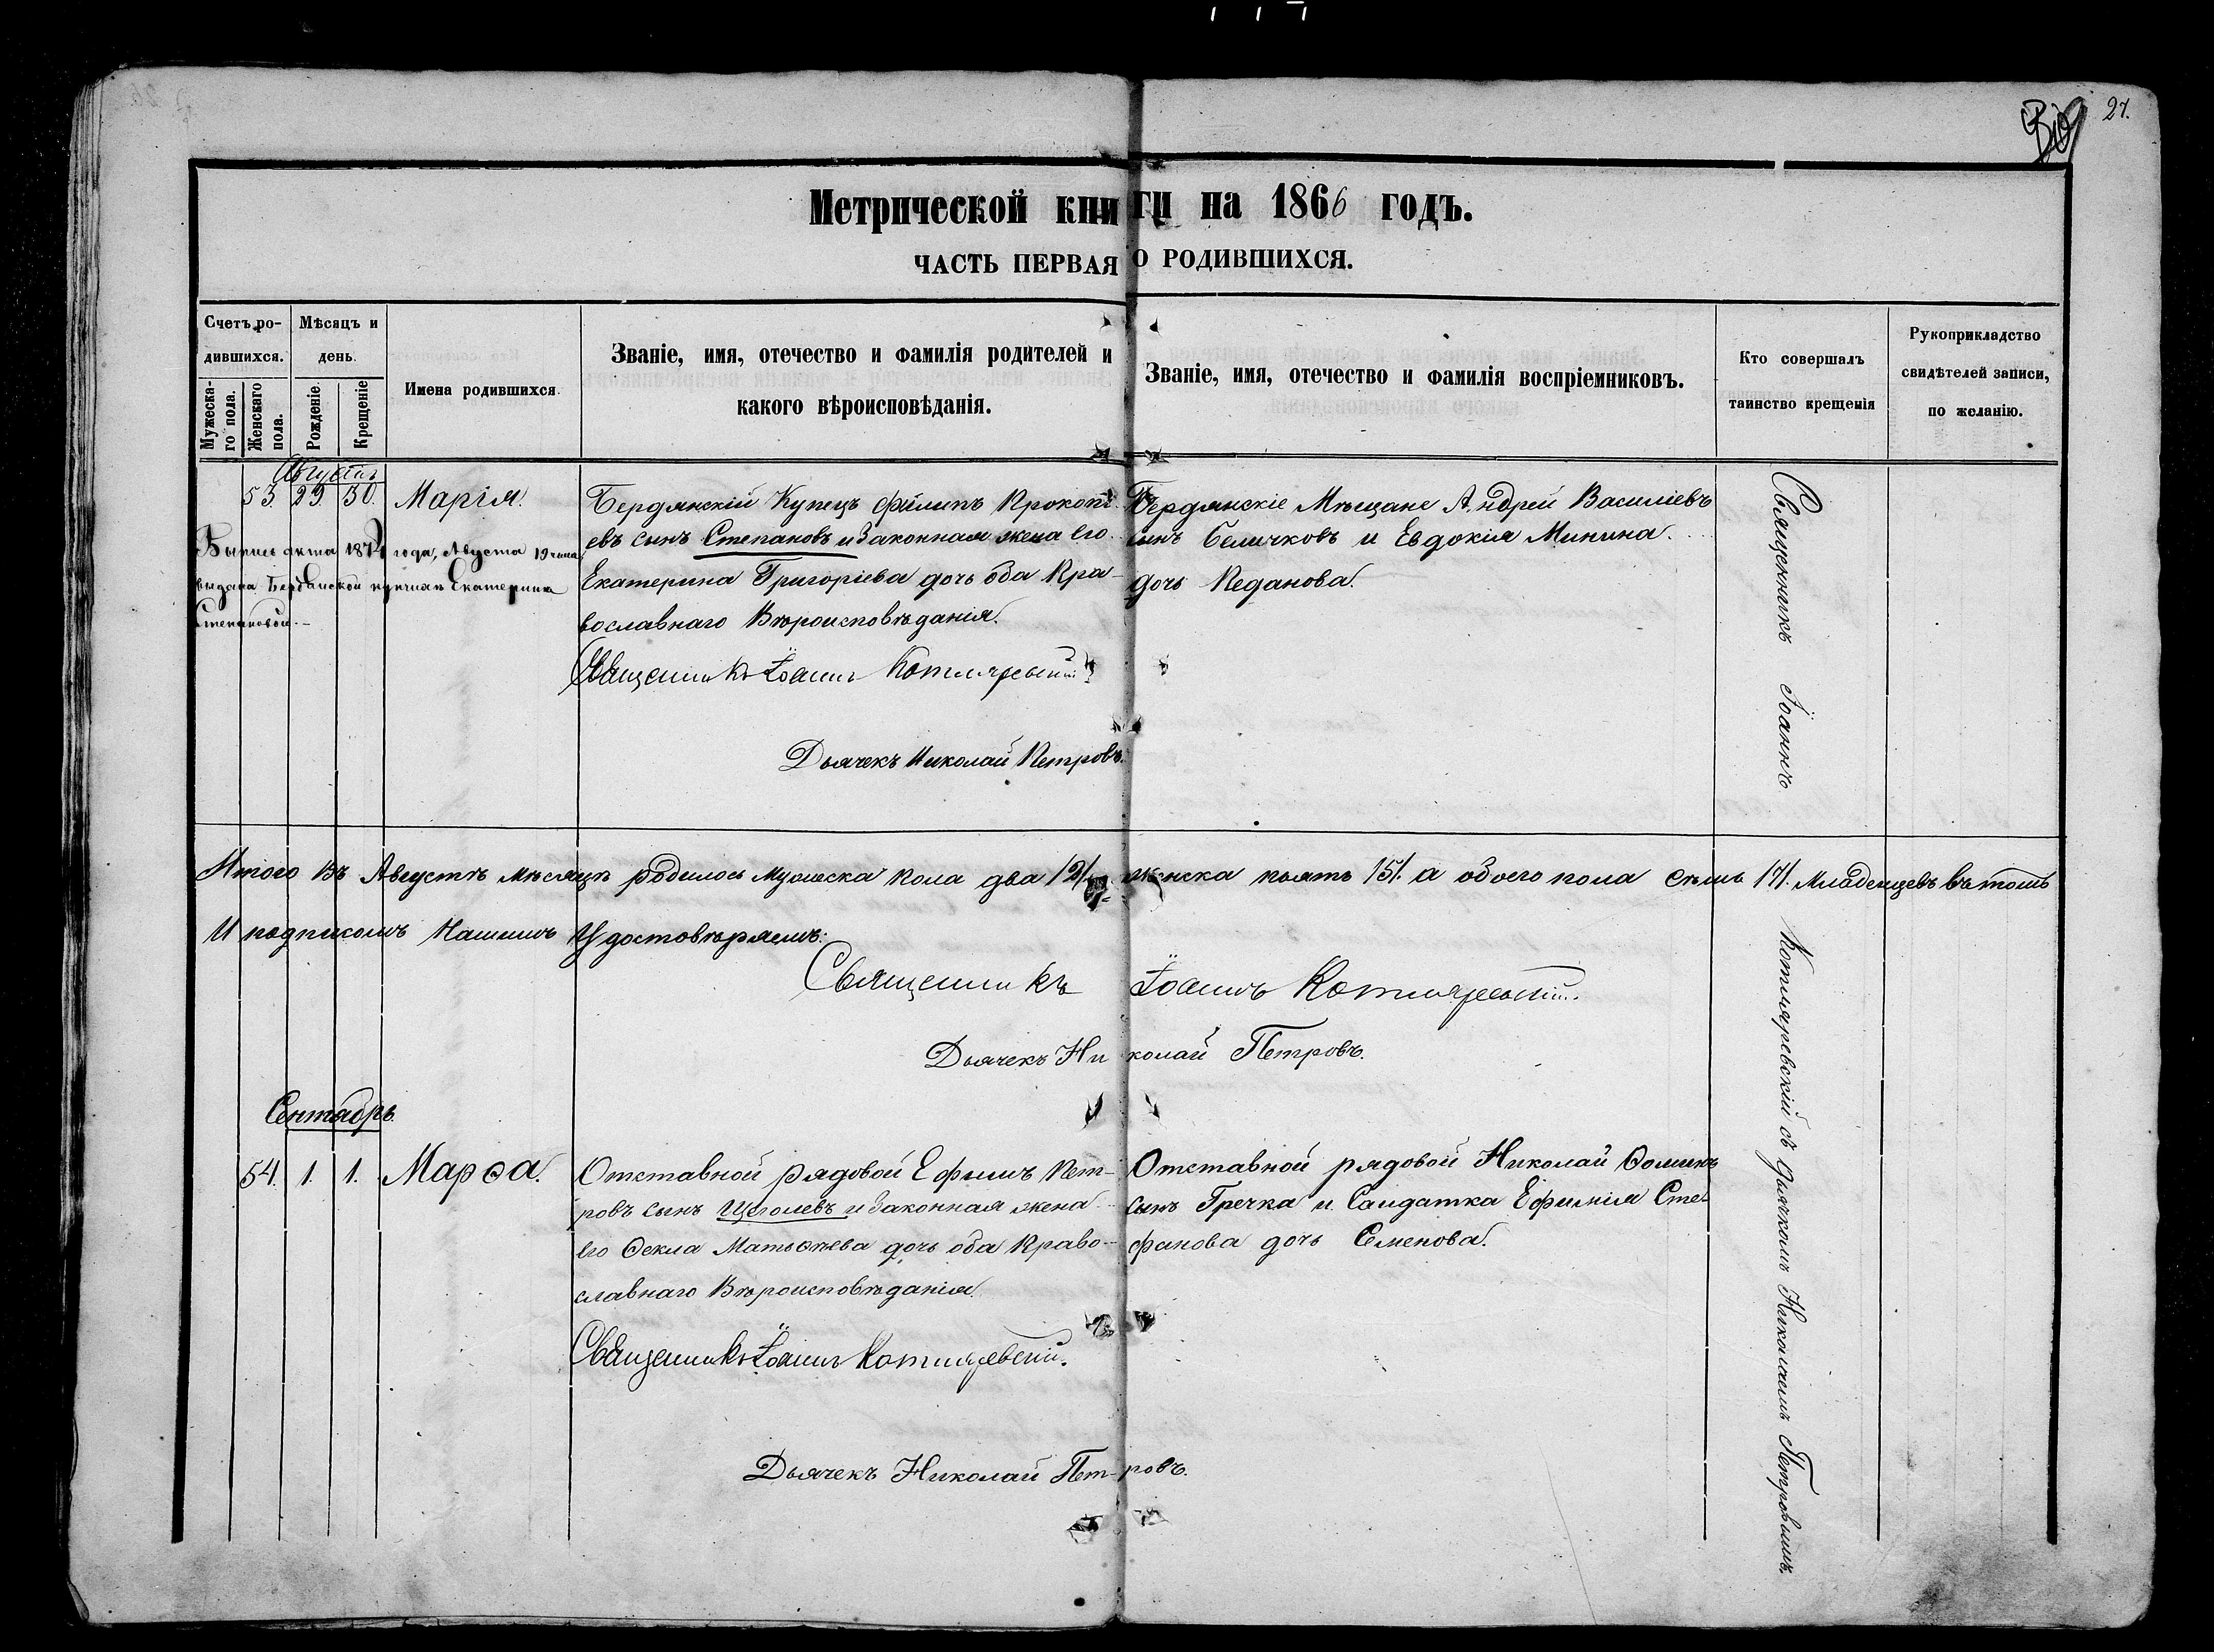 27.
Метрической книги на 1866 годъ.
ЧАСТЬ ПЕРВАЯ О РОДИВШИХСЯ.
Счетъ ро-
дившихся.
Мужеска-
го пола.
Женскаго
пола.
Мѣсяцъ и
день.
Рожденіе.
Крещеніе
Имена родившихся.
Званіе, имя, отечество и фамилія родителей и
какого вѣроисповѣданія.
Званіе, имя, отечество и фамилія воспріемниковъ.
Кто совершалъ
таинство крещенія
Рукоприкладство
свидѣтелей записи,
по желанію.
Августъ
53. 29. 30. Марія.
Бердянскій Купецъ Филипъ Прокопі-
евъ сынъ Степановъ и Законная жена его
Екатерина Григоріева дочь оба Пра-
вославнаго Вѣроисповѣданія.
Священникъ Іоаннъ Котляревскій
Дьячекъ Николай Петровъ.
Бердянскіе Мѣщане Андрей Василіевъ
сынъ Беличковъ и Евдокія Минина
дочь Педанова.
года, Августа 19 числа
выдана Бердянской купчихѣ Екатеринѣ
Степановой.-
Итого Въ Августѣ мѣсяцѣ родилось Мужеска пола два /2/ женска пять /5/. а обоего пола семь /7/. Младенцевъ въ томъ
И подписомъ Нашимъ Удостовѣряемъ:
Священникъ Іоаннъ Котляревскій.
Дьячекъ Николай Петровъ.
Сентябрь.
54. 1. 1. Марѳа.
Отставной рядовой Ефимъ Пет-
ровъ сынъ Щеголевъ и Законная жена
его Ѳекла Матвѣева дочь оба Право-
славнаго Вѣроисповѣданія.
Священникъ Іоаннъ Котляревскій.
Дьячекъ Николай Петровъ.
Отставной рядовой Николай Ѳоминъ
сынъ Гречка и Салдатка Ефимія Сте-
фанова дочь Семенова.
Священникъ Іоаннъ Котляревскій съ Дьячкомъ Николаемъ Петровымъ.